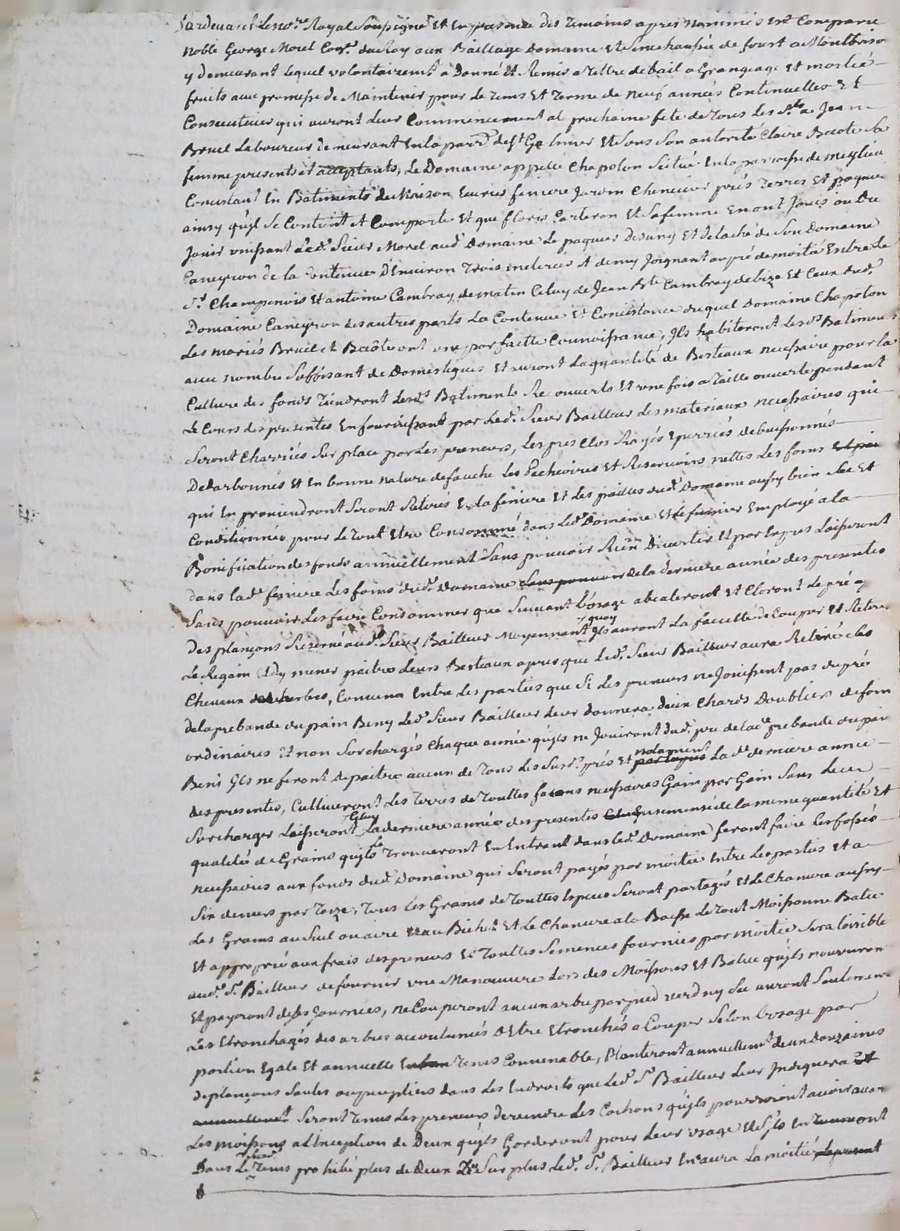 Pardevant Le no.re Royal Soussigné Et En presence des Temoins apres nommés Est Comparu
noble George Morel Con.er du Roy aux Bailliage Domaine et Senechaussée de forest a Montbriso
y demeurant Lequel volontairem.t a Donné Et Remis a Tittre de bail a Grangeage et moitié
fruits avec promesse de Maintenir pour Le Tems Et Terme de neuf années Continuelles Et
Consecutives qui auront Leur Commencement al prochaine fete de Tous Les S.ts a Jean
Breuil Laboureur Demeurant En la parr.e de S.t Et Sous Son autorité Claire Baôte Sa
femme presents et acceptants, Le Domaine appellé Chapolon Scitué En la parroisse de
Consistant En Batiments de Maison Ecuries feniere Jardin Cheneviere prés Terres Et paquier
ainsy qu'il Se Contient Et Comporte Et que fleury Et Sa femme En ont Jouis ou Du
Jouir unissant Led. Sieur Morel aud. Domaine Le paquier desuny Et detaché de Son Domaine
Caneyron de la Contenue D'Environ Trois meterées Et demy Joignant au pré de moitié Entre Le
S.r Champenois Et antoine Cambray de matin Celuy de Jean B.te Cambray de bize Et Ceux dud.
Domaine Caneyron des autres parts La Contenue Et Consistance duquel Domaine Chapolon
Les mariés Breuil et Baôte ont une parfaitte Connoissance, Ils habiteront Lesd. Batiments
avec nombre Suffisant de Domestiques Et auront La quantité de Bestiaux necessaire pour la
Culture des fonds Tiendront Lesd. Batiments Recouverts Et une fois a Taille ouverte pendant
Le Cours des presentes En fournissant par Led. Sieur Bailleur Les materiaux necessaires qui
Seront Charriés Sur place par Les preneurs, Les prés Clos Rasés Epierrés debuissonnés
Detarbonnés Et En bonne nature de fauche Les Pecheoires Et Reservoirs nettes Les foins
qui En proviendront Seront Retirés En la feniere Et Les pailles dud. Domaine aussy bien Sec Et
Conditionnés pour Le Tout Etre Consommé dans Led. Domaine Et Le fumier Employé a la
Bonification des fonds annuellement Sans pouvoir Rien Divertir Et par Exprés Laisseront
dans Lad. feniere Les foins dud. Domaine Sans pouvoir de la derniere année des presentes
Sans pouvoir Les faire Consommer que Suivant L'usage Et Cloront Le pré
Des plançons Reservé aud. Sieur Bailleur Moyennant quoy Ils auront La faculté de Couper Et Retirer
Le Regain Et d'y mener paitre Leurs Bestiaux apres que Led. Sieur Bailleur aura Retiré Les
Cheveux, Convenu Entre Les parties que Si Les preneurs ne Jouissent pas du pré
de la prebande du pain Beny Led. Sieur Bailleur Leur donnera deux Chards Doubliers de foin
ordinaires Et non Surchargés Chaque année qu'ils ne Jouiront dud. pré de Lad. prebande du pain
Beni Ils ne feront Depaitre aucun de Tous Les Susd. prés Et notament La d. derniere année
des presentes, Cultiveront Les Terres de Touttes façons necessaires Gain par Gain Sans Les
Surcharger Laisseront Celuy La derniere année des presentes Ensemencés de la meme quantité Et
qualité de Grains qu'ils Trouveront En Entrant dans Led. Domaine feront faire Les fossés
necessaires aux fonds dud. Domaine qui Seront payés par moitié Entre Les parties Et a
Six deniers par Toize; Tous Les Grains de Touttes Especes Seront partagés Et Le Chanvre aussy
Les Grains au Suel ou aire au Bichet Et Le Chanvre a la Basse Le Tout Moissonné Battu
Et approprié aux frais des preneurs Et Touttes Semences fournies par moitié Sera Loisible
aud. S.r Bailleur de fournir une Manoeuvre Lors des Moissons Et Batue qu'ils nourriront
Et payeront de Ses Journées, ne Couperont aucun arbre par pied verd ny Sec auront Seulement
Les Etronchages des arbres accoutumés D'Etre Etronchés a Couper Selon L'usage par
portion Egale Et annuelle En Tems Convenable, Planteront annuellem.t deux Douzaines
de plançons Saules ou peupliers dans Les Endroits que Led. S.r Bailleur Leur Indiquera
annuellement Seront Tenus Les preneurs de vendre Les Cochons qu'ils pourroient avoir avant
Les moissons a L'Exception de Deux qu'ils Garderont pour Leur usage Et S'ils En Tiennent
Dans Le Tems prohibé plus de Deux Du Surplus Led. S.r Bailleur En aura La moitié